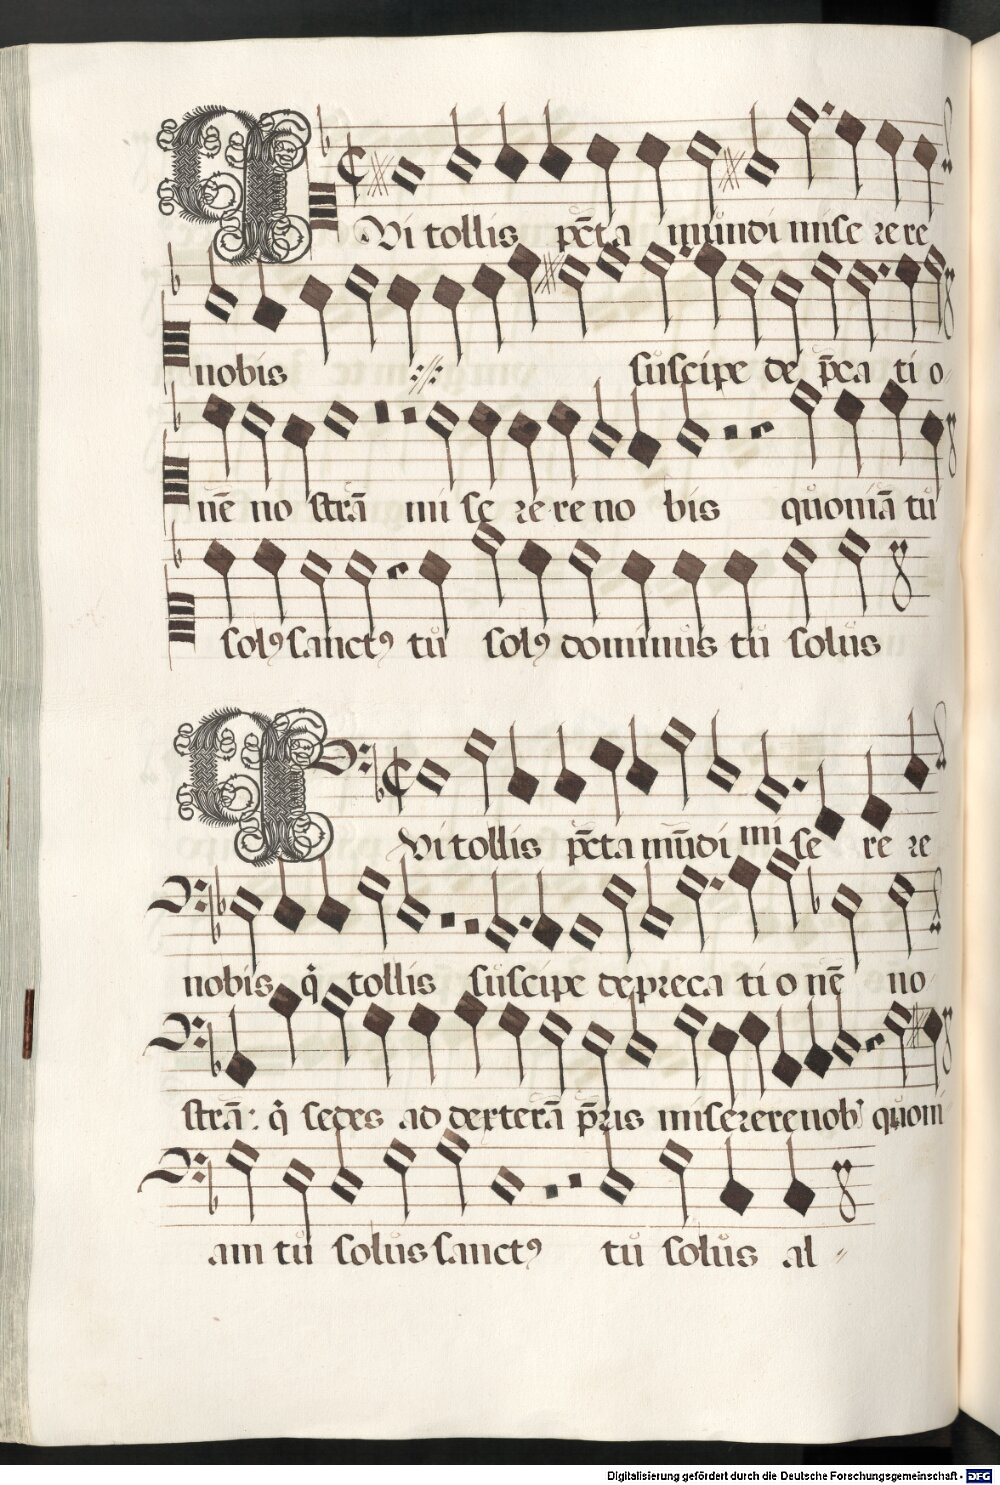 Qui tollis pc̄ta mundi mise re re
nobis ·//· suscipe de p̄ca ti o
nē no strā mi se re re no bis quoniā tu
solꝰ sanctꝰ tu solꝰ dominus tu solus
Qui tollis pc̄ta mūdi mi se re re
nobis q̇ tollis suscipe depreca ti o nē no
strā: q̇ sedes ad dexterā p̄ris miserere nob quoni
am tu solus sanctꝰ tu solus al
Digitalisierung gefördert durch die Deutsche Forschungsgemeinschaft - DFG